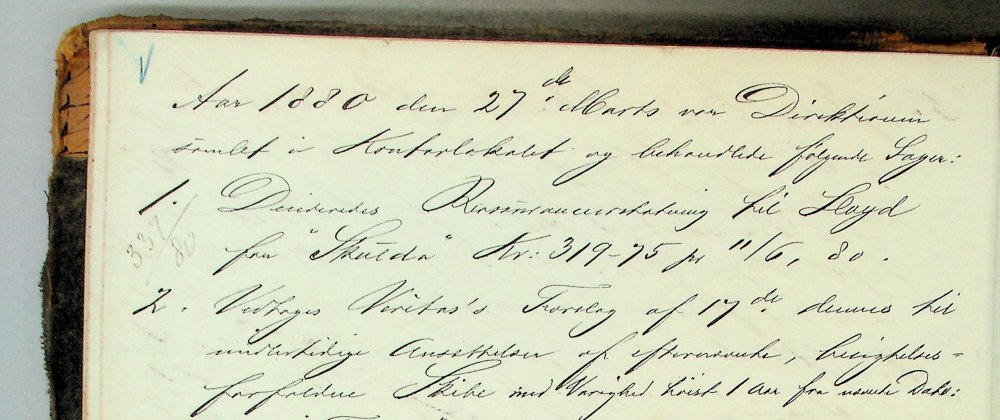 V
Aar 1880 den 27de Marts var Direktionen
samlet i Kontorlokalet og behandlede følgende Sager:
1. Reassuranceerstatning til Lloyd
337/80
fra "Skulda" Kr: 319-75 pr 11/6, 80.
2. Vedtages Veritas's Forslag af 17de dennes til
midlertidige Ansættelser af efternævnte, besigtelses-
forfaldne Skibe med Varighed høist 1 Aar fra nævnte Dato: